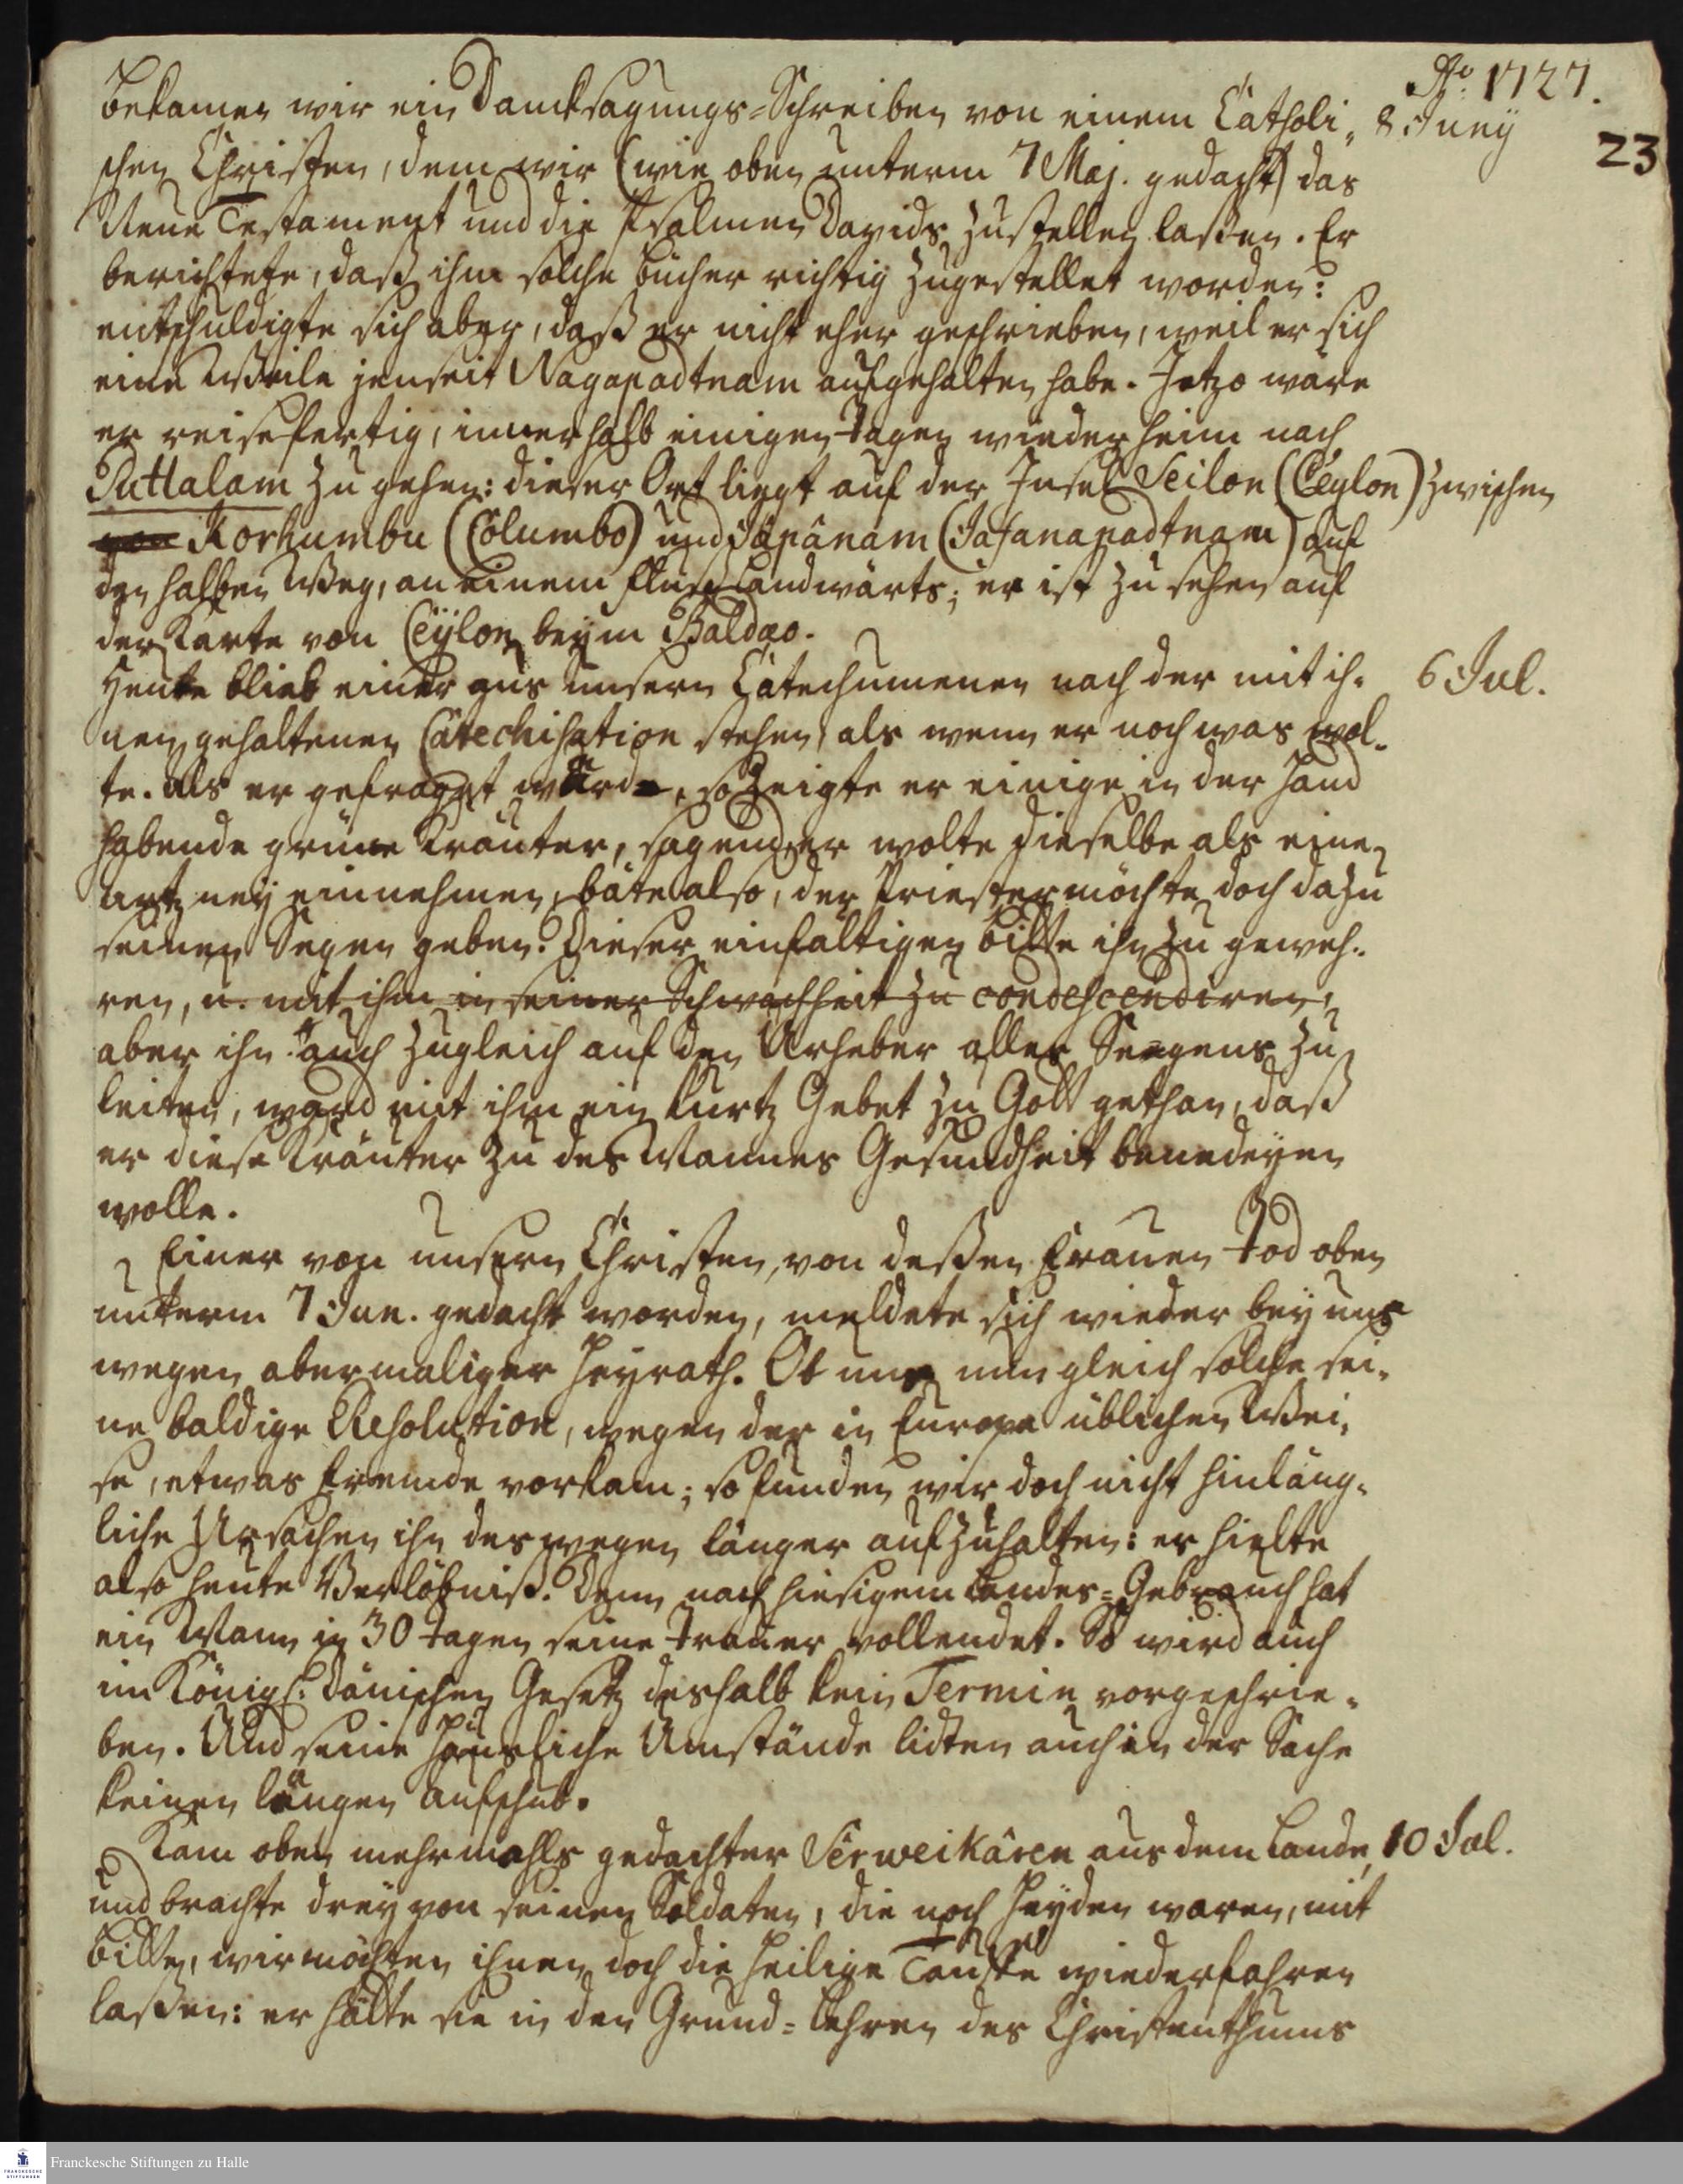 Aº 1727.
23
bekamen wir ein Dancksagungs-Schreiben von einem Catholi- 8 Juny
schen Christen, dem wir (wie oben unterm 7 Maj. gedacht) das
Neue Testament und die Psalmen Davids zustellen laßen. Er
berichtete, daß ihm solche Bücher richtig zugestellet worden:
entschuldigte sich aber, daß er nicht eher geschrieben, weil er sich
eine Weile jenseit Nagapadtnam aufgehalten habe. Jetzo wäre
er reisefertig, innerhalb einigen Tagen wieder heim nach
Puttalam zu gehen: dieser Ort liegt auf der Insel Seilon (Ceylon) zwischen
von Korhumbu (Columbo) und Jâpânam (Jafanapadtnam) auf
den halben Weg, an einem Fluß landwärts; er ist zu sehen auf
der Karte von Ceylon beym Baldæo.
Heute blieb einer aus unsern Catechumenen nach der mit ih- 6 Jul.
nen gehaltenen Catechisation stehen, als wenn er noch was wol-
te. Als er gefraget ward, so zeigte er einige in der Hand
habende grüne Kräuter, sagend, er wolte dieselbe als eine
Artzney einnehmen, bäte also, der Priester möchte doch dazu
seinen Segen geben. Dieser einfältigen Bitte ihn zu geweh-
ren, u. mit ihm in seiner Schwachheit zu condescendiren,
aber ihn auch zugleich auf den Urheber alles Seegens zu
leiten, ward mit ihm ein kurtz Gebet zu Gott gethan, daß
er diese Kräuter zu des Mannes Gesundheit benedeyen
wolle.
Einer von unsern Christen, von deßen Frauen Tod oben
unterm 7 Jun. gedacht worden, meldete sich wieder bey uns
wegen abermaliger Heyrath. Ob uns nun gleich solche sei-
ne baldige Resolution, wegen der in Europa üblichen Wei-
se, etwas fremde vorkam; so funden wir doch nicht hinläng-
liche Ursachen ihn deswegen länger aufzuhalten: er hielte
also heute Verlöbniß. Denn nach hiesigem Landes-Gebrauch hat
ein Mann in 30 Tagen seine Trauer vollendet. So wird auch
im Königl. Dänischen Gesetz deshalb kein Termin vorgeschrie-
ben. Und seine häusliche Umstände lidten auch in der Sache
keinen langen Aufschub.
Kam oben mehrmahls gedachter Serweikâren aus dem Lande, 10 Jul.
und brachte drey von seinen Soldaten, die noch Heyden waren, mit
Bitte, wir möchten ihnen doch die heilige Tauffe wiederfahren
laßen: er hätte sie in den Grund-Lehren des Christenthums
Franckesche Stiftungen zu Halle